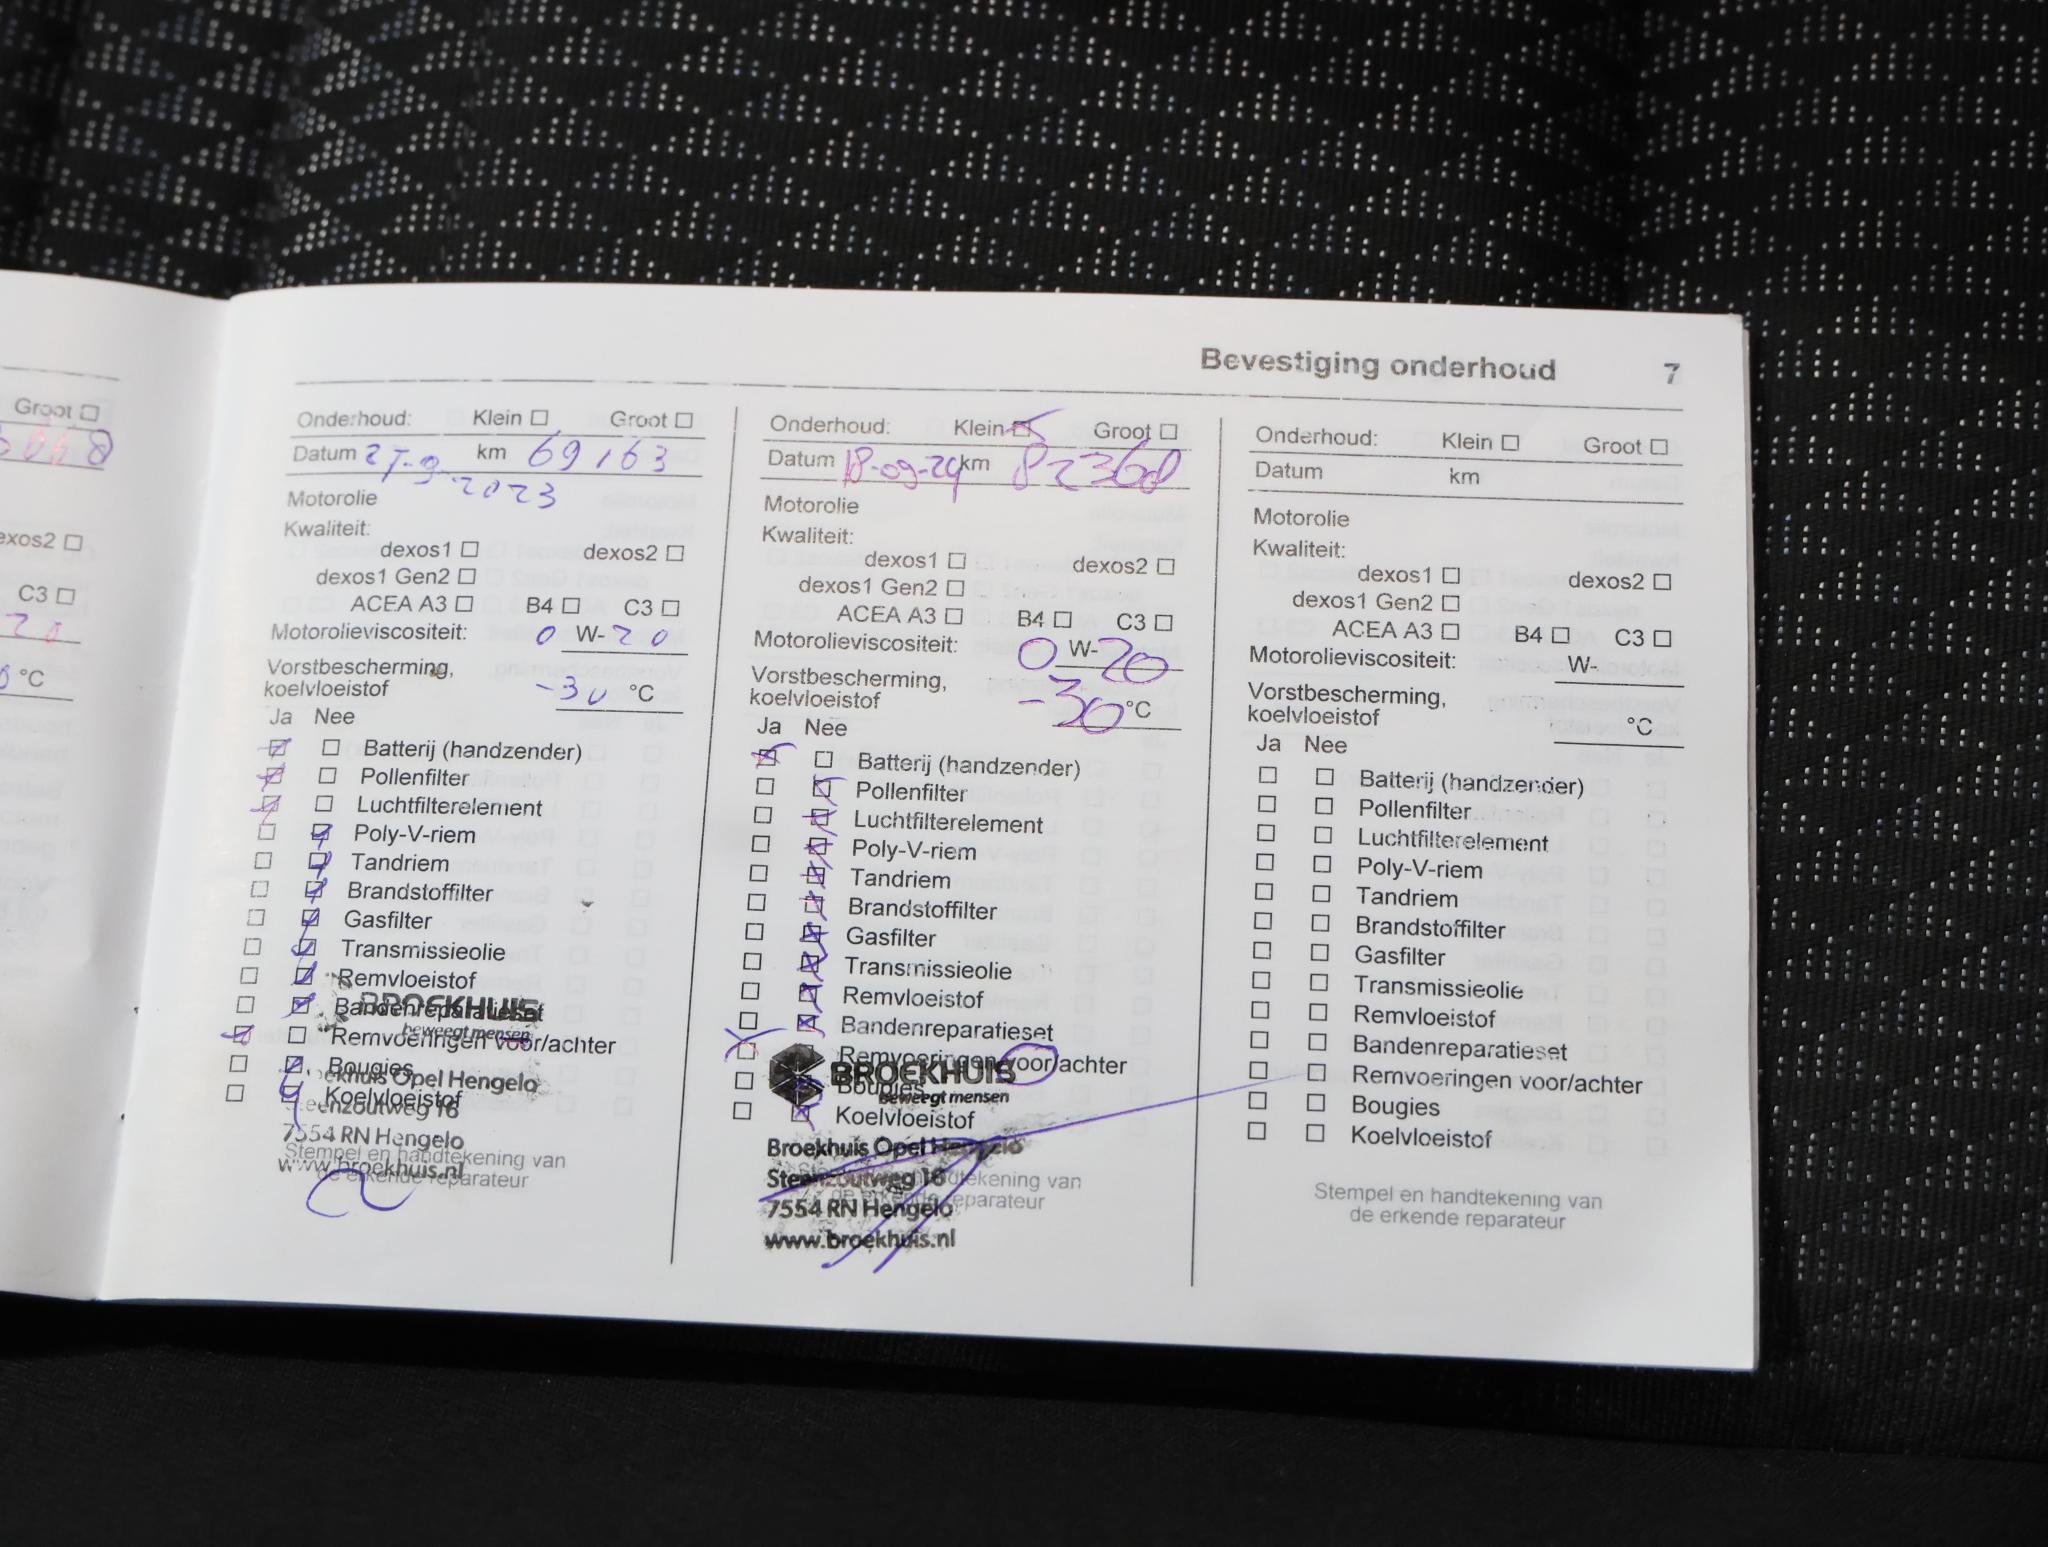 Groot
exos2
C3
20
°C
Bevestiging onderhoud 7
Onderhoud: Klein Groot
Datum 27-9-2023 km 69163
Motorolie
Kwaliteit:
dexos1 dexos2
dexos1 Gen2
ACEA A3 B4 C3
Motorolieviscositeit: 0 W-20
Vorstbescherming,
koelvloeistof -30 °C
Ja Nee
Batterij (handzender)
Pollenfilter
Luchtfilterelement
Poly-V-riem
Tandriem
Brandstoffilter
Gasfilter
Transmissieolie
Remvloeistof
Bandenreparatieset
Remvoeringen voor/achter
Bougies
Koelvloeistof
BROEKHUIS
beweegt mensen
Broekhuis Opel Hengelo
Steenzoutweg 16
7554 RN Hengelo
www.broekhuis.nl
Stempel en handtekening van
de erkende reparateur
Onderhoud: Klein Groot
Datum 18-09-24 km 82368
Motorolie
Kwaliteit:
dexos1 dexos2
dexos1 Gen2
ACEA A3 B4 C3
Motorolieviscositeit: 0 W-20
Vorstbescherming,
koelvloeistof -30 °C
Ja Nee
Batterij (handzender)
Pollenfilter
Luchtfilterelement
Poly-V-riem
Tandriem
Brandstoffilter
Gasfilter
Transmissieolie
Remvloeistof
Bandenreparatieset
Remvoeringen voor/achter
Bougies
Koelvloeistof
BROEKHUIS
beweegt mensen
Broekhuis Opel Hengelo
Steenzoutweg 16
7554 RN Hengelo
www.broekhuis.nl
Stempel en handtekening van
de erkende reparateur
Onderhoud: Klein Groot
Datum km
Motorolie
Kwaliteit:
dexos1 dexos2
dexos1 Gen2
ACEA A3 B4 C3
Motorolieviscositeit: W-
Vorstbescherming,
koelvloeistof °C
Ja Nee
Batterij (handzender)
Pollenfilter
Luchtfilterelement
Poly-V-riem
Tandriem
Brandstoffilter
Gasfilter
Transmissieolie
Remvloeistof
Bandenreparatieset
Remvoeringen voor/achter
Bougies
Koelvloeistof
Stempel en handtekening van
de erkende reparateur